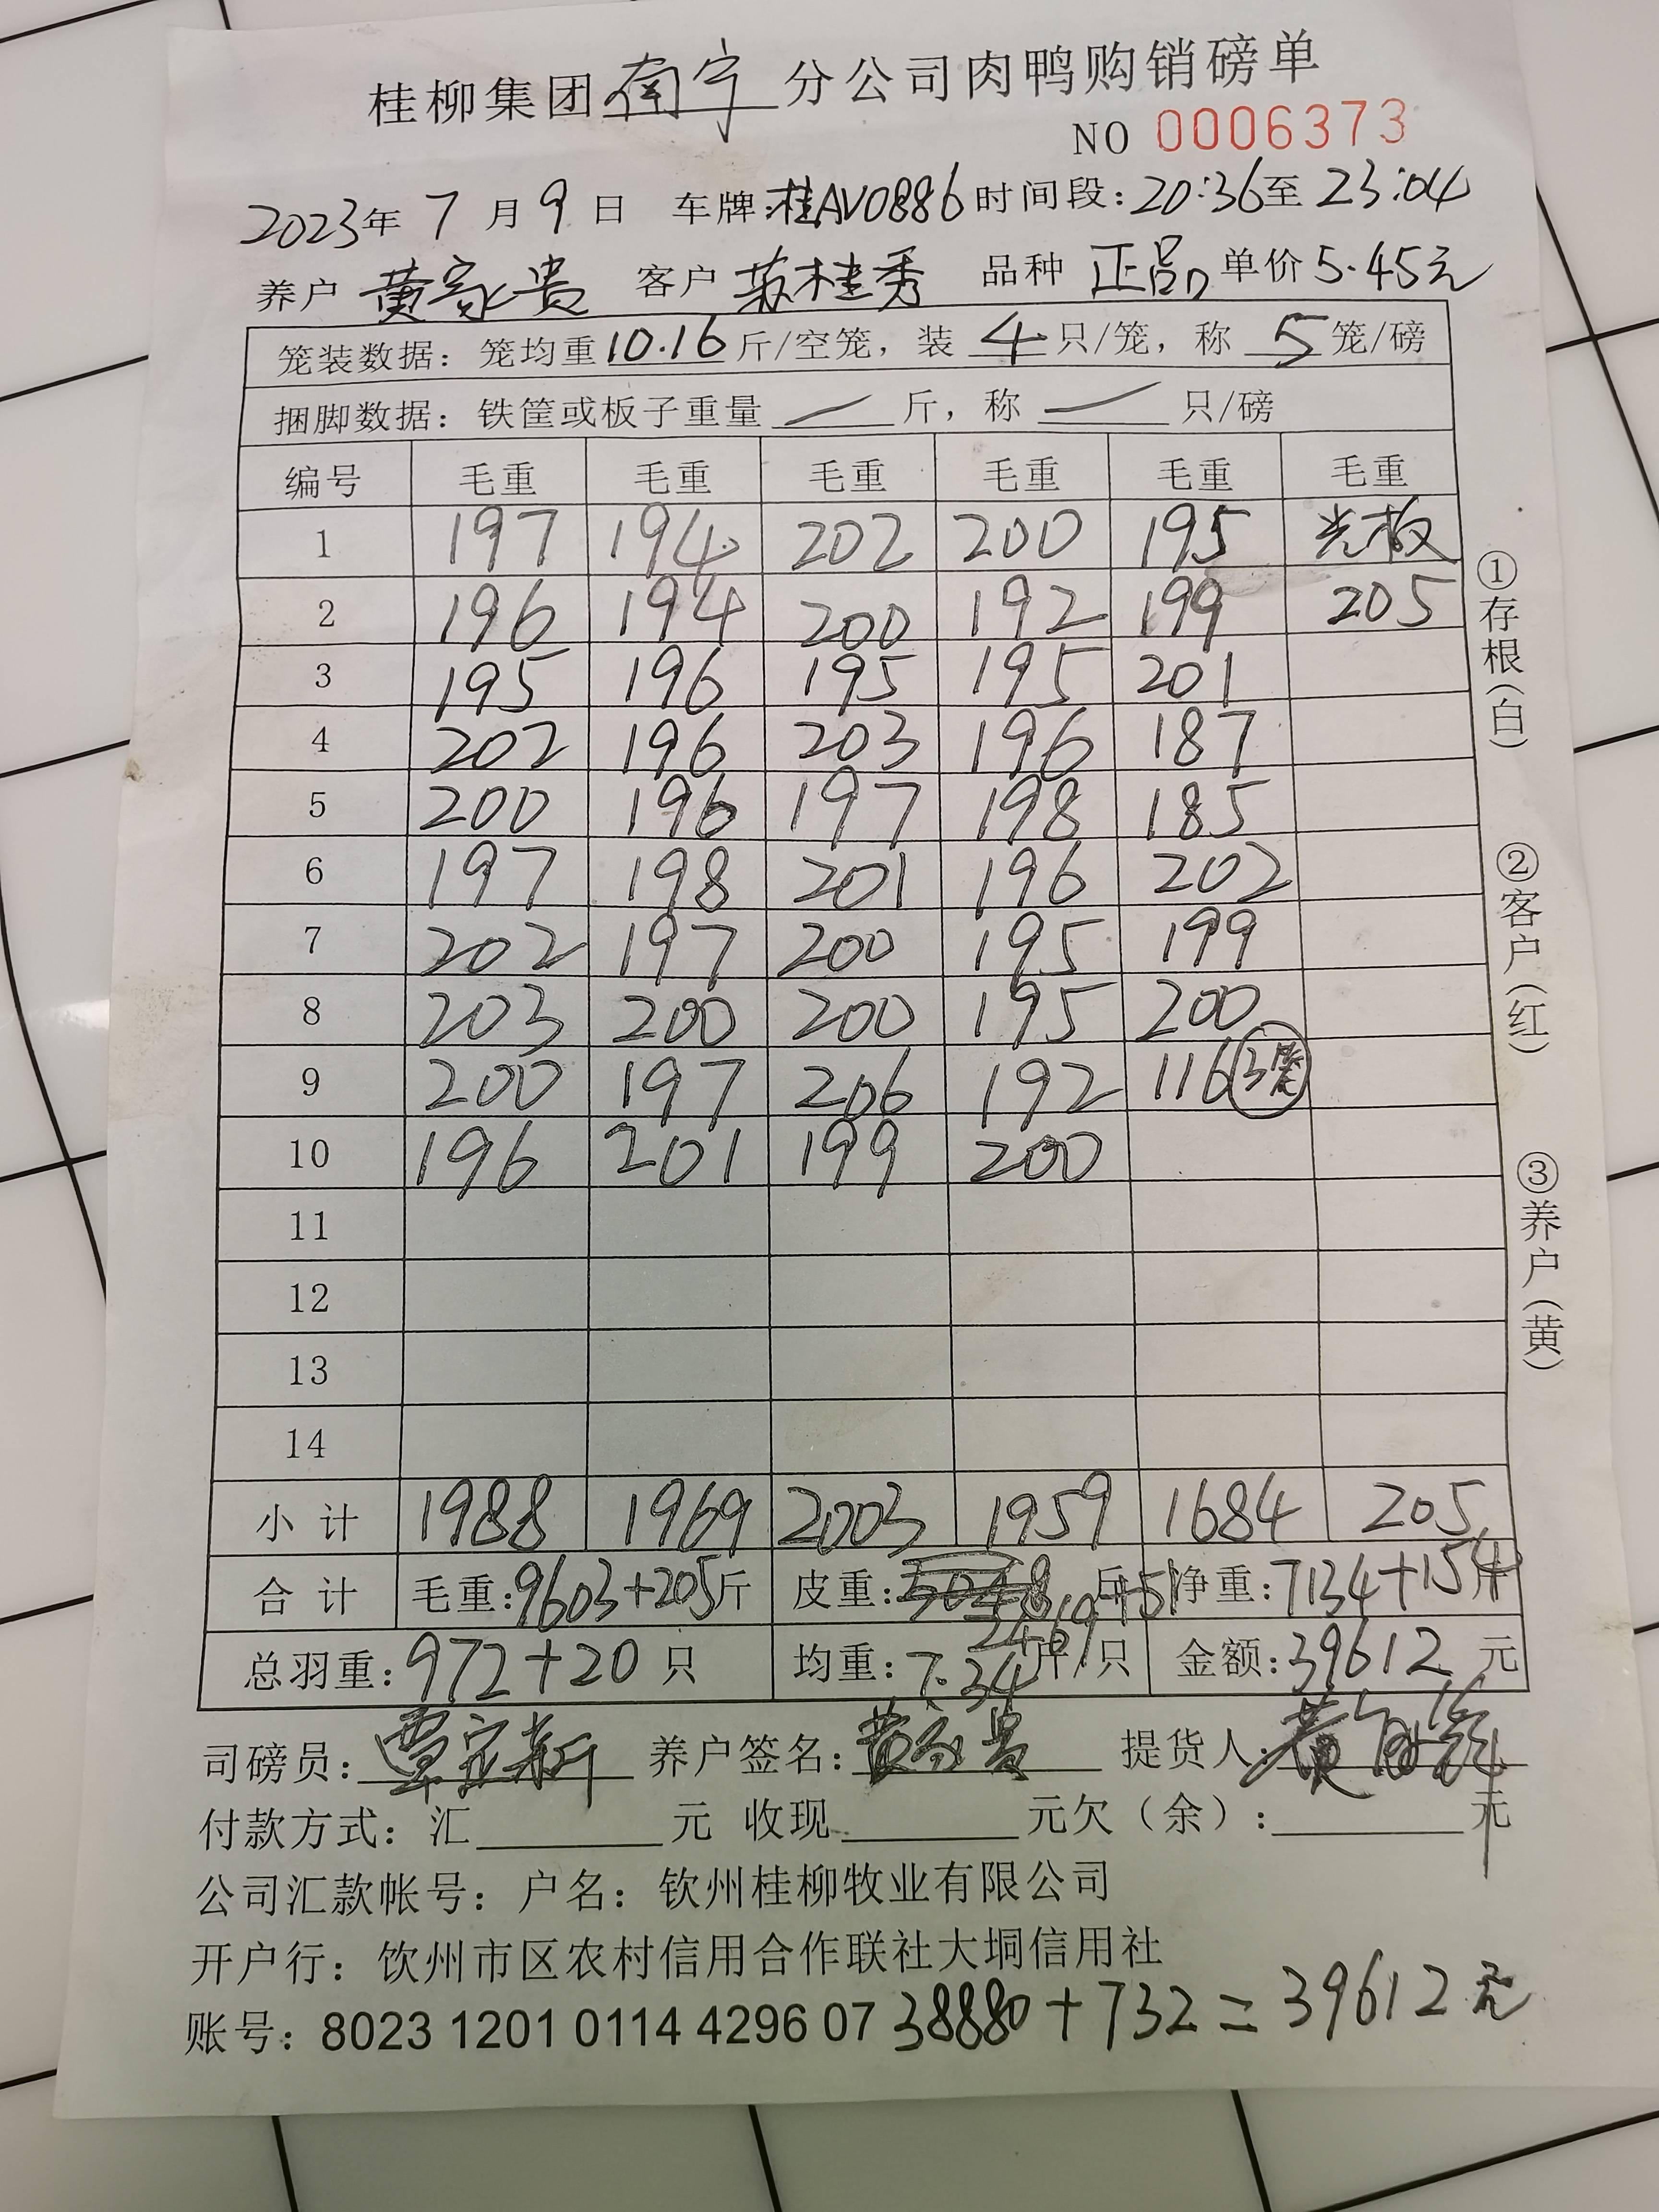 桂柳集团南宁分公司肉鸭购销磅单
NO 0006373
2023年 7 月 9 日 车牌:桂AV0886 时间段:20:36至 23:04
养户 黄家贵 客户 苏桂秀 品种 正品 单价 5.45元
笼装数据：笼均重10.16斤/空笼，装 4 只/笼，称 5 笼/磅
捆脚数据：铁筐或板子重量 — 斤，称 — 只/磅
编号 毛重 毛重 毛重 毛重 毛重 毛重
1 197 194 202 200 195 光板
2 196 194 200 192 199 205
3 195 196 195 195 201
4 202 196 203 196 187
5 200 196 197 198 185
6 197 198 201 196 202
7 202 197 200 195 199
8 203 200 200 195 200
9 200 197 206 192 116 3笼
10 196 201 199 200
11
12
13
14
小计 1988 1969 2003 1959 1684 205
合计 毛重:9603+205斤 皮重: 2469+51斤 净重:7134+154斤
总羽重:972+20 只 均重:7.34斤/只 金额:39612 元
司磅员: 养户签名:黄家贵 提货人:
付款方式：汇 元 收现 元欠（余）: 元
公司汇款帐号：户名：钦州桂柳牧业有限公司
开户行：钦州市区农村信用合作联社大垌信用社
账号：8023 1201 0114 4296 07 38880+732=39612元
①存根(白)
②客户(红)
③养户(黄)